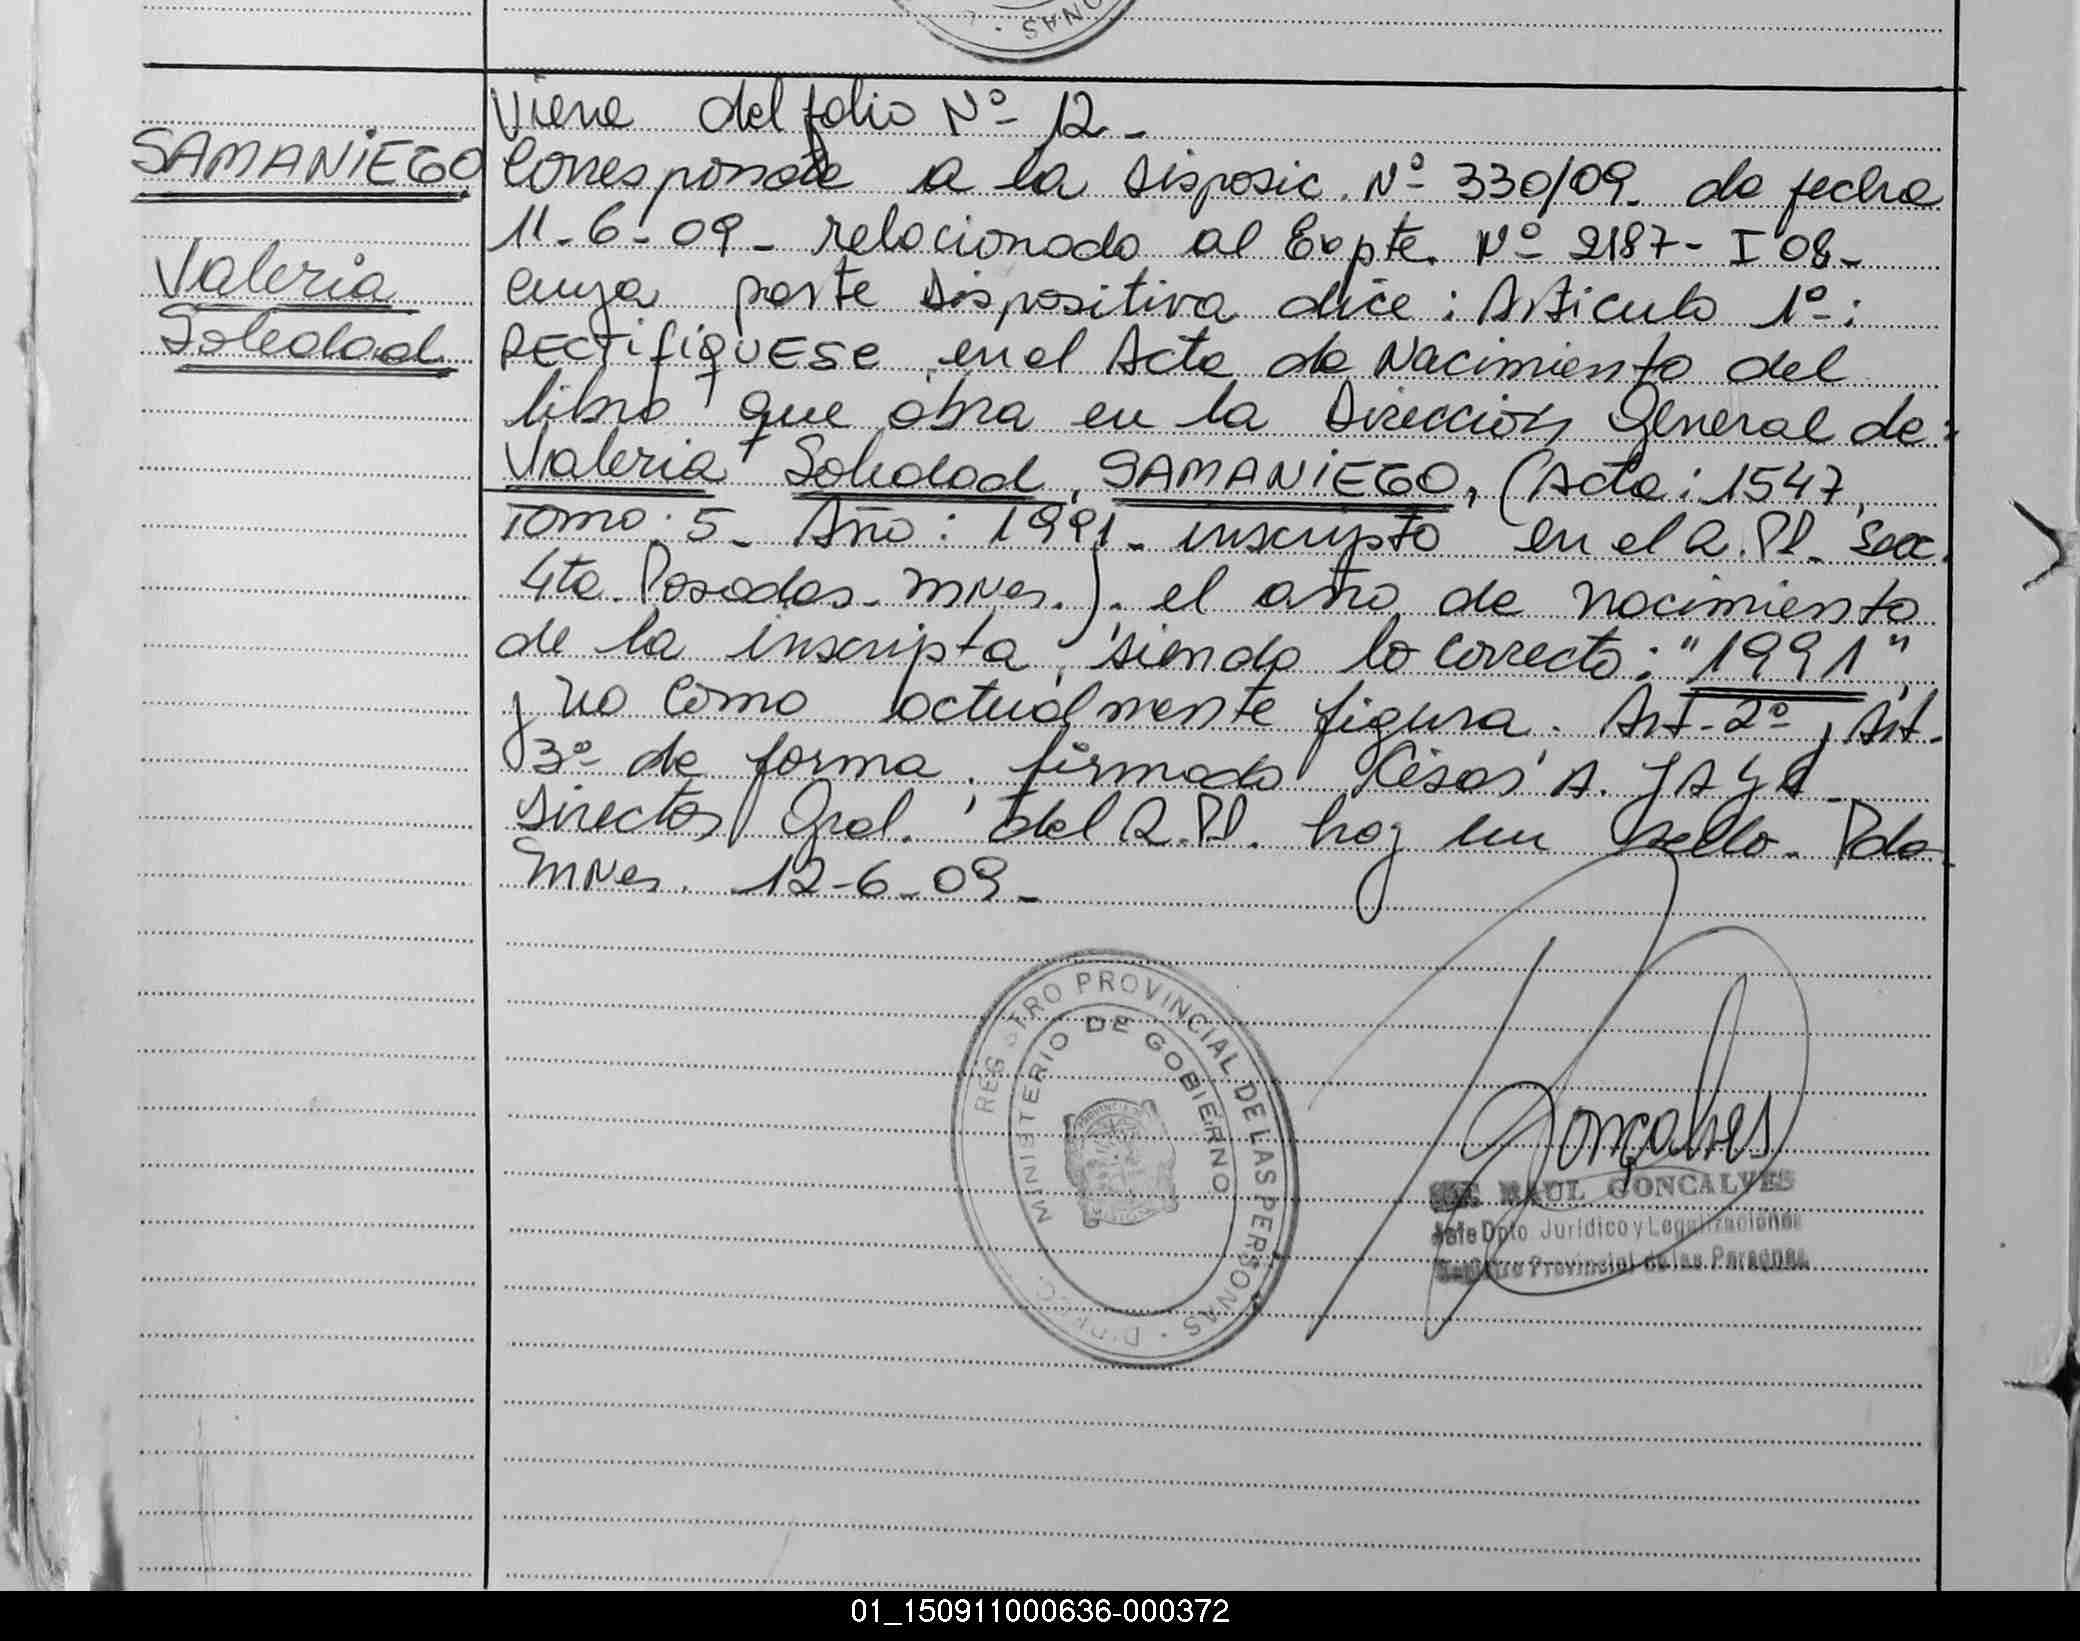 SAMANIEGO
Valeria
Soledad
Viene del folio Nº 12.-
Corresponde a la Disposic. Nº 330/09. de fecha
11-6-09- relacionado al Expte. Nº 2187- I 08-
cuya parte dispositiva dice: Articulo 1º:
RECTIFIQUESE en el Acta de Nacimiento del
libro que obra en la Direccion General de:
Valeria Soledad, SAMANIEGO, (Acta: 1547,
Tomo: 5- Año: 1991- inscripto en el R.P. Secc.
4ta. Posadas- Mnes.). el año de nacimiento
de la inscripta, siendo lo correcto: "1991",
y no como actualmente figura. Art-2º y Art.
3º de forma. firmado Cesar A. JAYA
Director Gral. del R.P. hay un sello. Pda-
Mnes. 12-6-09-
REGISTRO PROVINCIAL DE LAS PERSONAS
MINISTERIO DE GOBIERNO
Gonçalves
RAUL GONCALVES
Jefe Dpto Jurídico y Legalizaciones
Registro Provincial de las Personas
01_150911000636-000372